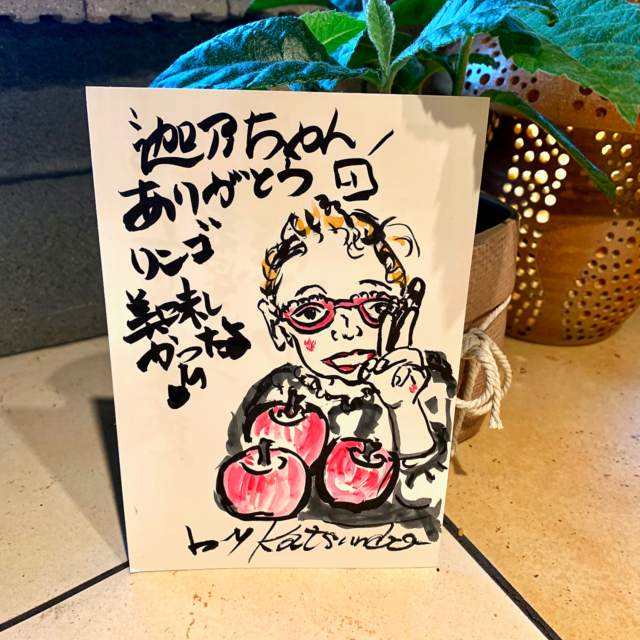 迦乃ちゃん
ありがとう
リンゴ
美味し
かったよ
by Katsundo